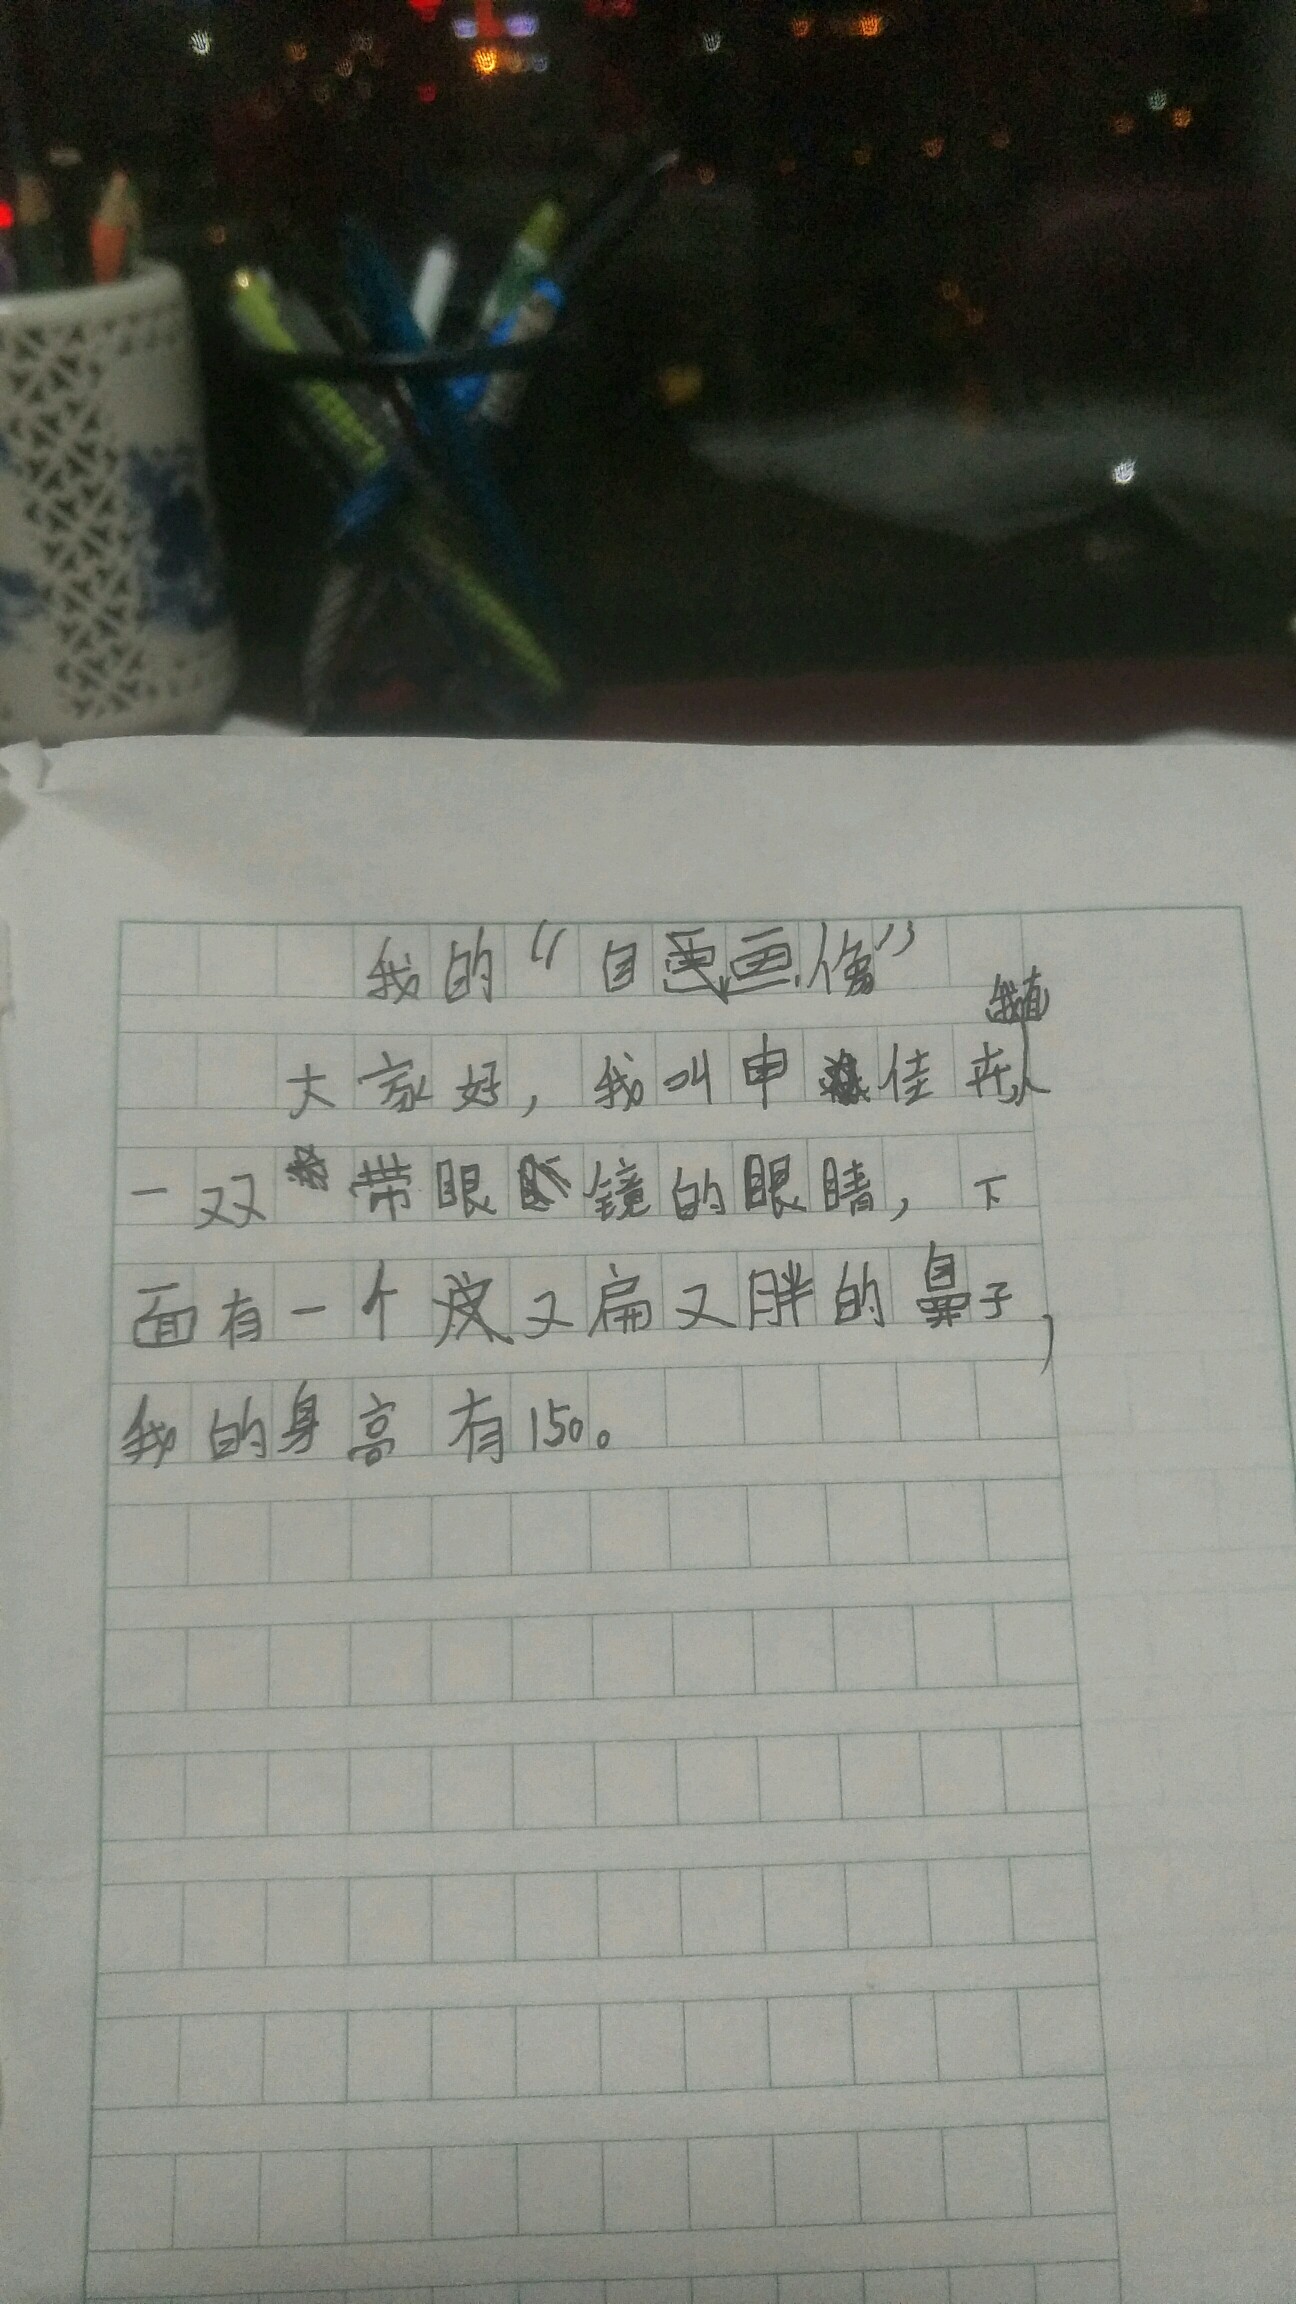 我的“自画像”
大家好，我叫申佳卉，我有
一双带眼镜的眼睛，下
面有一个皮又扁又胖的鼻子，
我的身高有150。